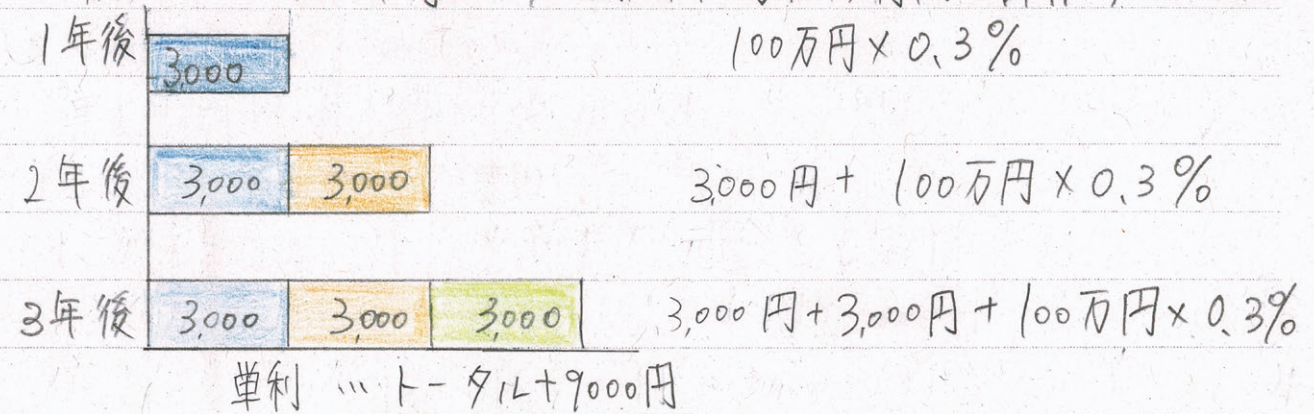 1年後 3,000 100万円×0.3%
2年後 3,000 3,000 3,000円+ 100万円×0.3%
3年後 3,000 3,000 3,000 3,000円+3,000円+100万円×0.3%
単利…トータル+9000円